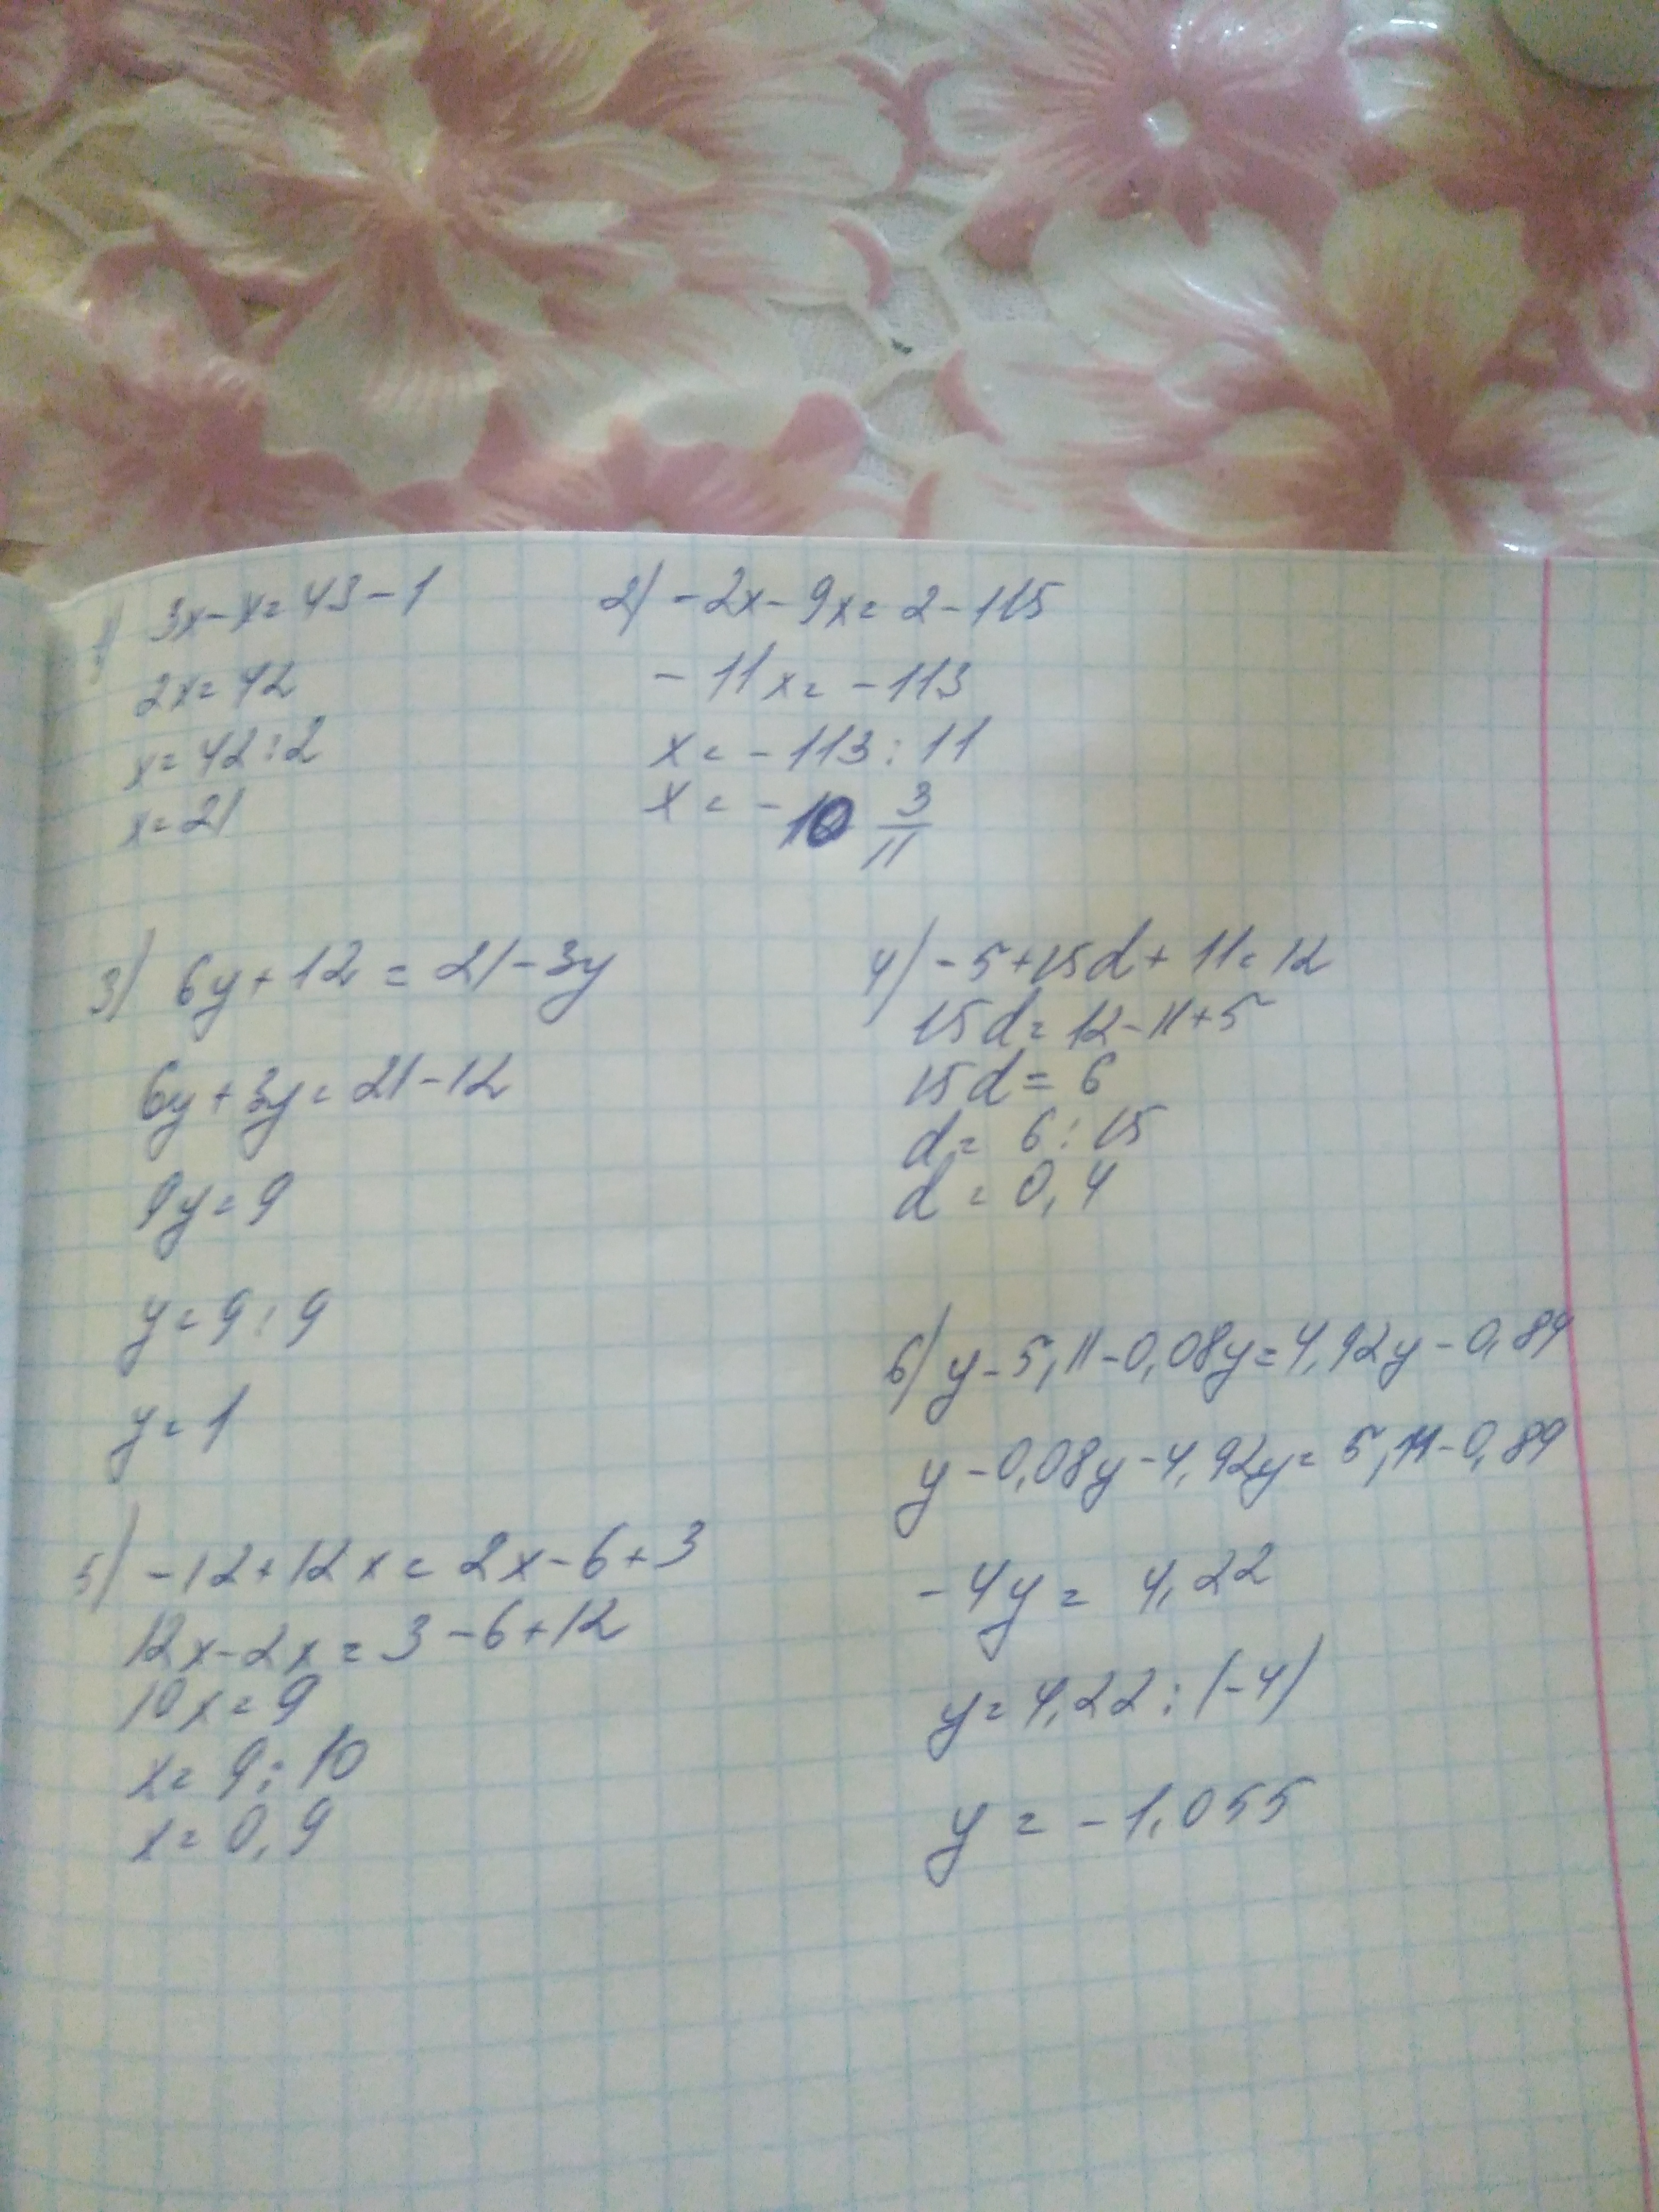 1) 3x-x=43-1
2x=42
x=42:2
x=21
2) -2x-9x=2-115
-11x=-113
x=-113:11
x=-10 3/11
3) 6y+12=21-3y
6y+3y=21-12
9y=9
y=9:9
y=1
4) -5+15d+11=12
15d=12-11+5
15d=6
d=6:15
d=0,4
5) -12+12x=2x-6+3
12x-2x=3-6+12
10x=9
x=9:10
x=0,9
6) y-5,11-0,08y=4,92y-0,89
y-0,08y-4,92y=5,11-0,89
-4y=4,22
y=4,22:(-4)
y=-1,055